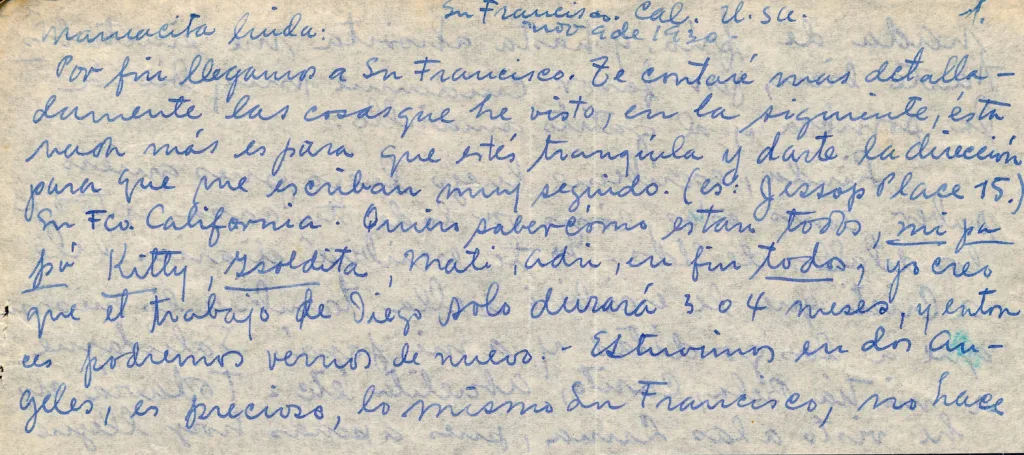 Sn Francisco. Cal. U.SA. 1.
nov 9 de 1930
Mamacita linda:
Por fin llegamos a Sn Francisco. Te contaré más detalla-
damente las cosas que he visto, en la siguiente, ésta
nada más es para que estés tranquila y darte la dirección
para que me escriban muy seguido. (es: Jessop Place 15.)
Sn Fco. California. Quiero saber cómo estan todos, mi pa
pá Kitty, Isoldita, Mati, Adri, en fin todos, yo creo
que el trabajo de Diego solo durará 3 o 4 meses, y enton
ces podremos vernos de nuevo. - Estuvimos en Los An-
geles, es precioso, lo mismo Sn Francisco, no hace